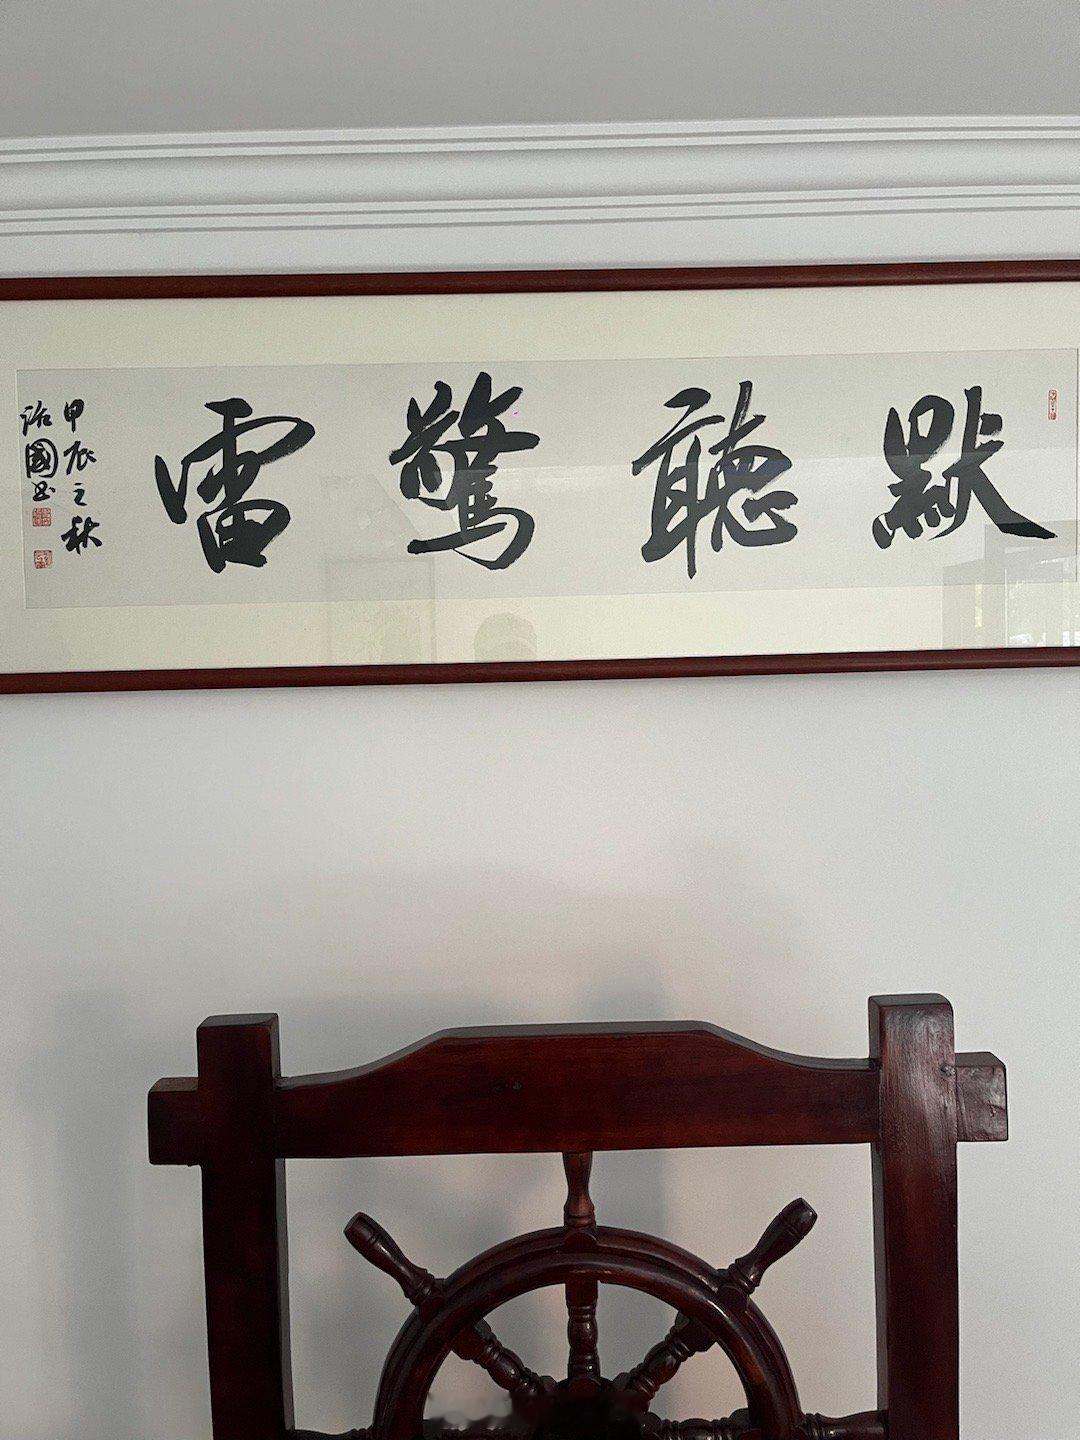 默聽驚雷
甲辰之秋
治國书